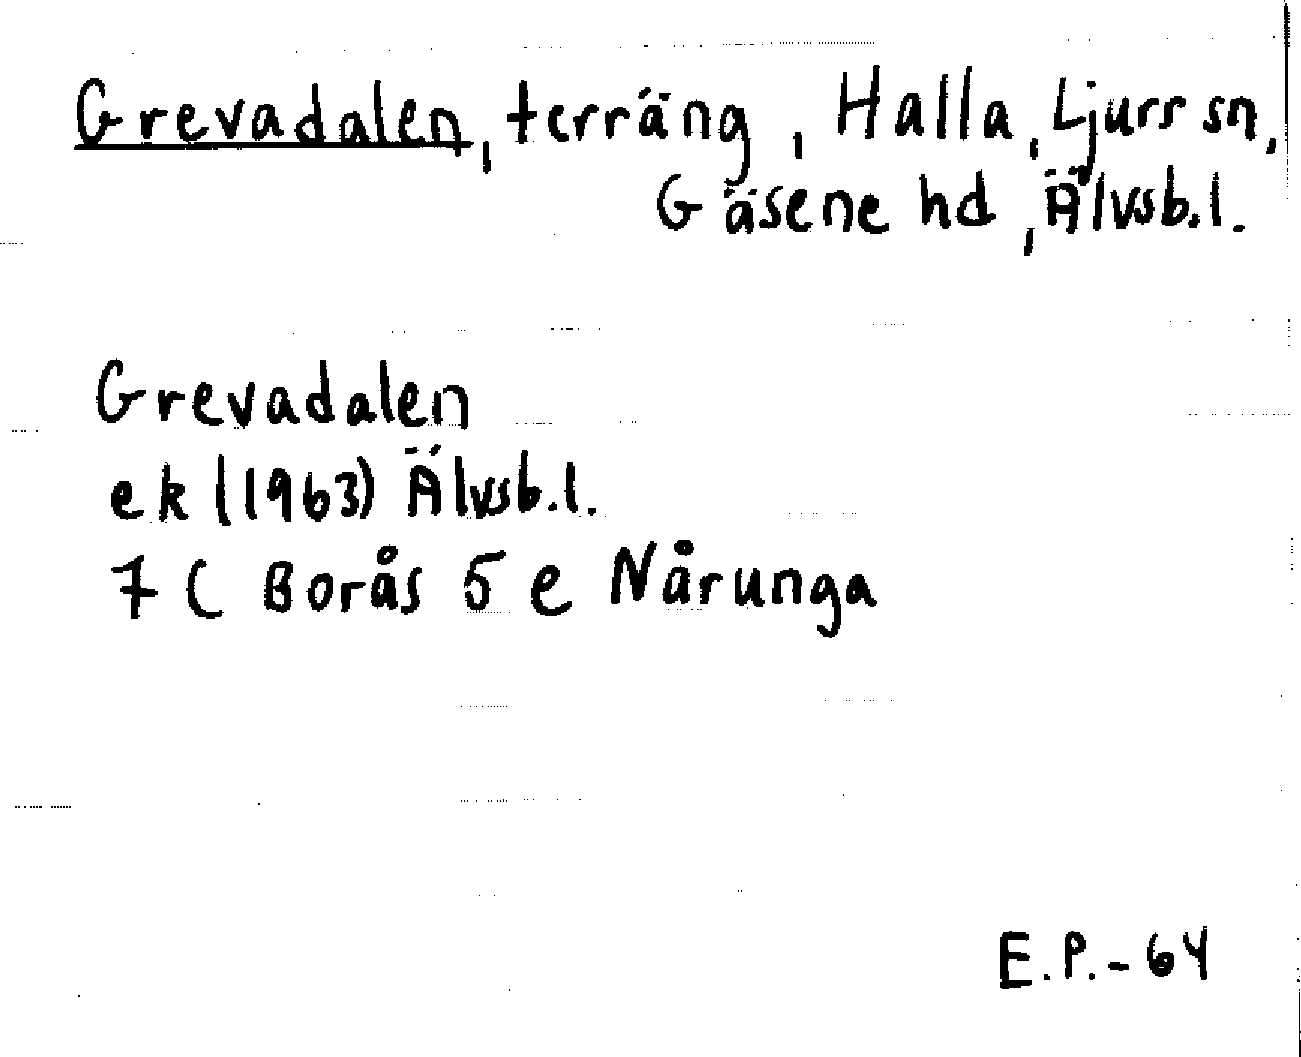 Grevadalen, terräng, Halla, Ljurr sn,
Gäsene hd, Älvsb.l.
Grevadalen
ek (1963) Älvsb.l.
7 C Borås 5 e Nårunga
E.P.-64